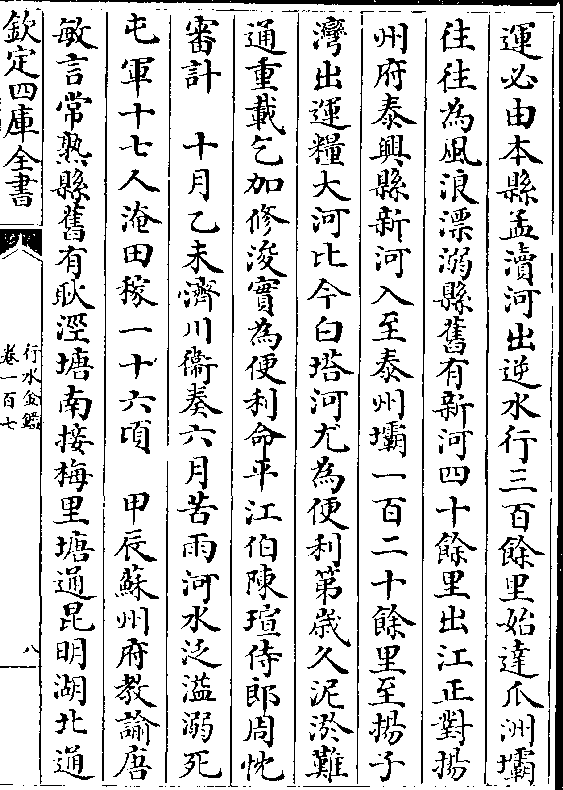 運必由本縣孟瀆河出逆水行三百餘里始達爪洲壩
往往為風浪漂溺縣舊有新河四十餘里出江正對揚
州府泰興縣新河入至泰州壩一百二十餘里至揚子
灣出運糧大河比今白塔河尤為便利第歲久泥淤難
通重載乞加修浚實為便利命平江伯陳瑄侍郎周忱
審計　十月乙未濟川衞奏六月苦雨河水泛溢溺死
屯軍十七人淹田稼一十六頃　甲辰蘇州府教諭唐
敏言常熟縣舊有耿涇塘南接梅里塘通昆明湖北通
欽定四庫全書
行水金鑑
卷一百七
八